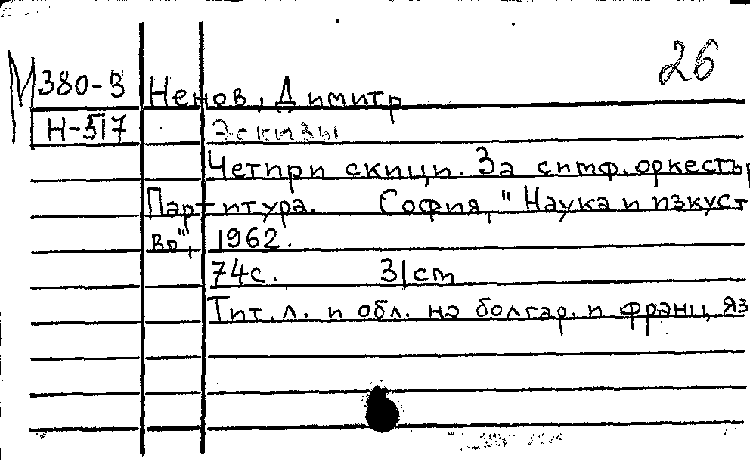 26
М380-3 Ненов, Димитр
Н-517 Эскизы
Четири скици. За симф. оркестър
Партитура. София, "Наука и изкуст
во", 1962.
74с. 31cm
Тит. л. и обл. на болгар. и франц. яз